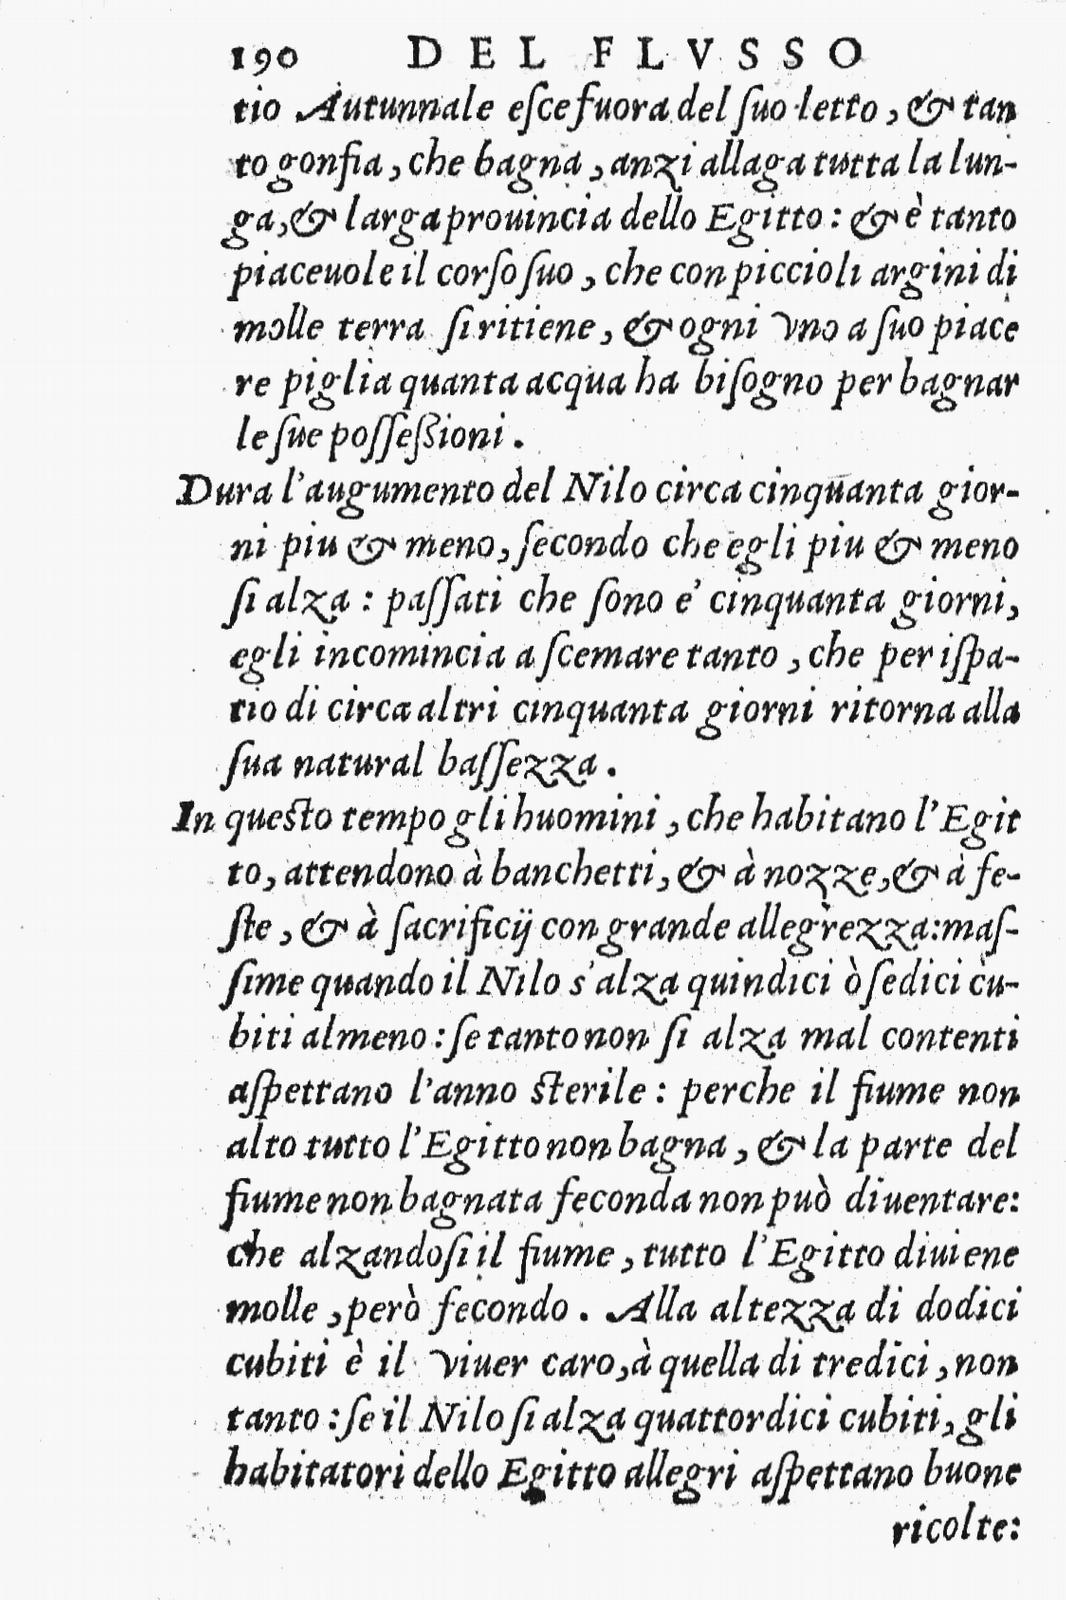 190 DEL FLVSSO
tio Autunnale eſce fuora del ſuo letto, & tan
to gonfia, che bagna, anzi allaga tutta la lun-
ga, & larga prouincia dello Egitto: & è tanto
piaceuole il corſo ſuo, che con piccioli argini di
molle terra ſi ritiene, & ogni vno a ſuo piace
re piglia quanta acqua ha biſogno per bagnar
le ſue poſſeßioni.
Dura l'augumento del Nilo circa cinquanta gior-
ni piu & meno, ſecondo che egli piu & meno
ſi alza: paſſati che ſono e' cinquanta giorni,
egli incomincia a ſcemare tanto, che per iſpa-
tio di circa altri cinquanta giorni ritorna alla
ſua natural baſſezza.
In queſto tempo gli huomini, che habitano l'Egit
to, attendono à banchetti, & à nozze, & à fe-
ſte, & à ſacrificij con grande allegrezza: maſ-
ſime quando il Nilo s'alza quindici ò ſedici cu-
biti almeno: ſe tanto non ſi alza mal contenti
aſpettano l'anno ſterile: perche il fiume non
alto tutto l'Egitto non bagna, & la parte del
fiume non bagnata feconda non può diuentare:
che alzandoſi il fiume, tutto l'Egitto diuiene
molle, però fecondo. Alla altezza di dodici
cubiti è il viuer caro, à quella di tredici, non
tanto: ſe il Nilo ſi alza quattordici cubiti, gli
habitatori dello Egitto allegri aſpettano buone
ricolte: